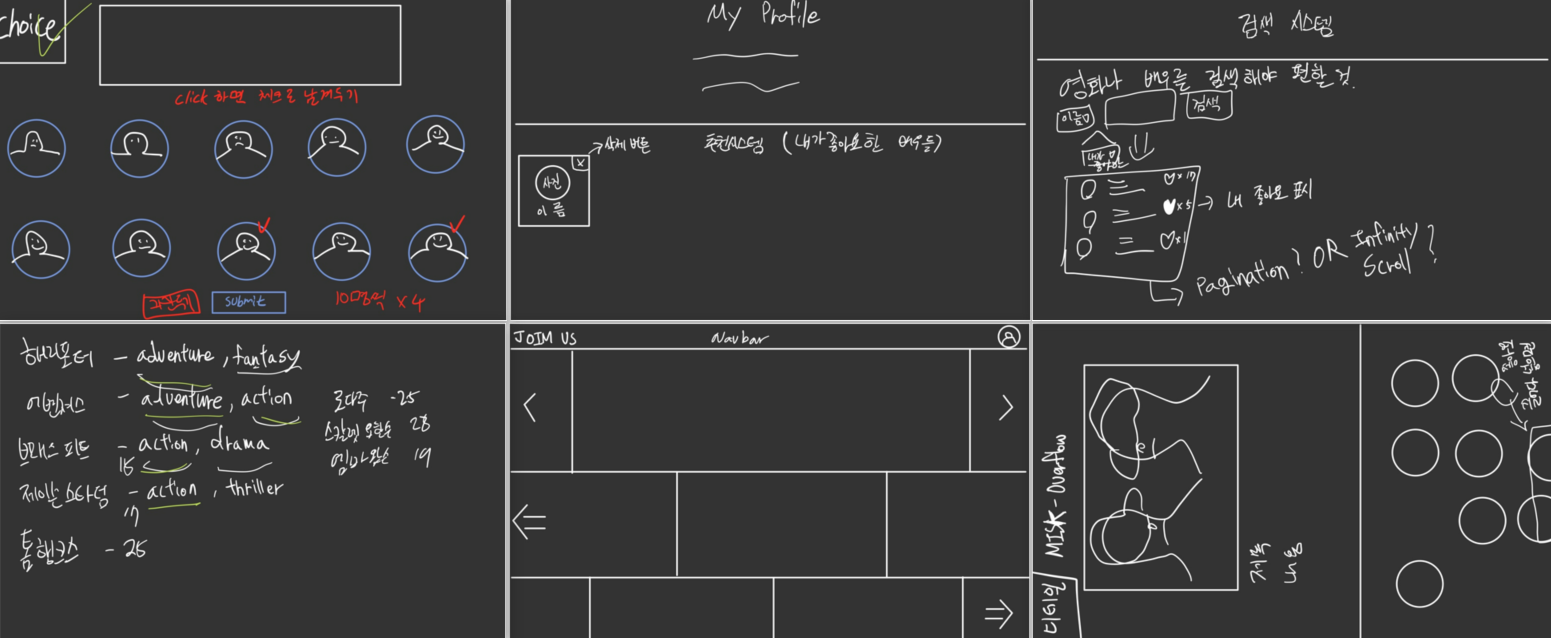 choice
click 하면 체크로 남겨두기
submit
10명씩 x 4
My Profile
삭제 버튼
추천시스템 (내가 좋아요한 배우들)
x
사진
이름
검색 시스템
영화나 배우를 검색해야 편할 것.
이름
검색
내가 ♡
좋아하는
♡ x 17
♥ x 5 → 내 좋아요 표시
♡ x 1
Pagination? OR Infinity Scroll?
해리포터 - adventure, fantasy
어벤져스 - adventure, action
브래드 피트 - action, drama
15
제이슨 스타덤 - action, thriller
17
톰행크스 - 25
로다주 - 25
스칼렛 요한슨 28
엠마 왓슨 19
JOIM US
Navbar
MISK-Overflow
디테일
제목
내용